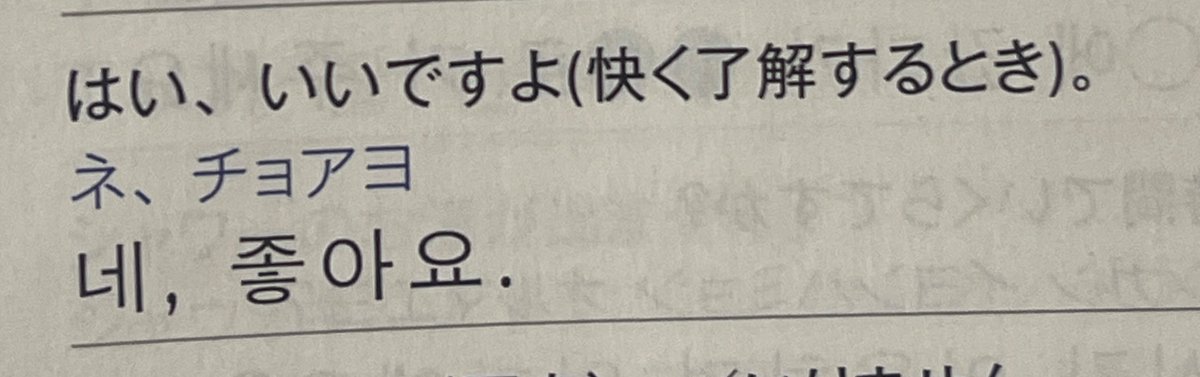 はい、いいですよ(快く了解するとき)。
ネ、チョアヨ
네, 좋아요.